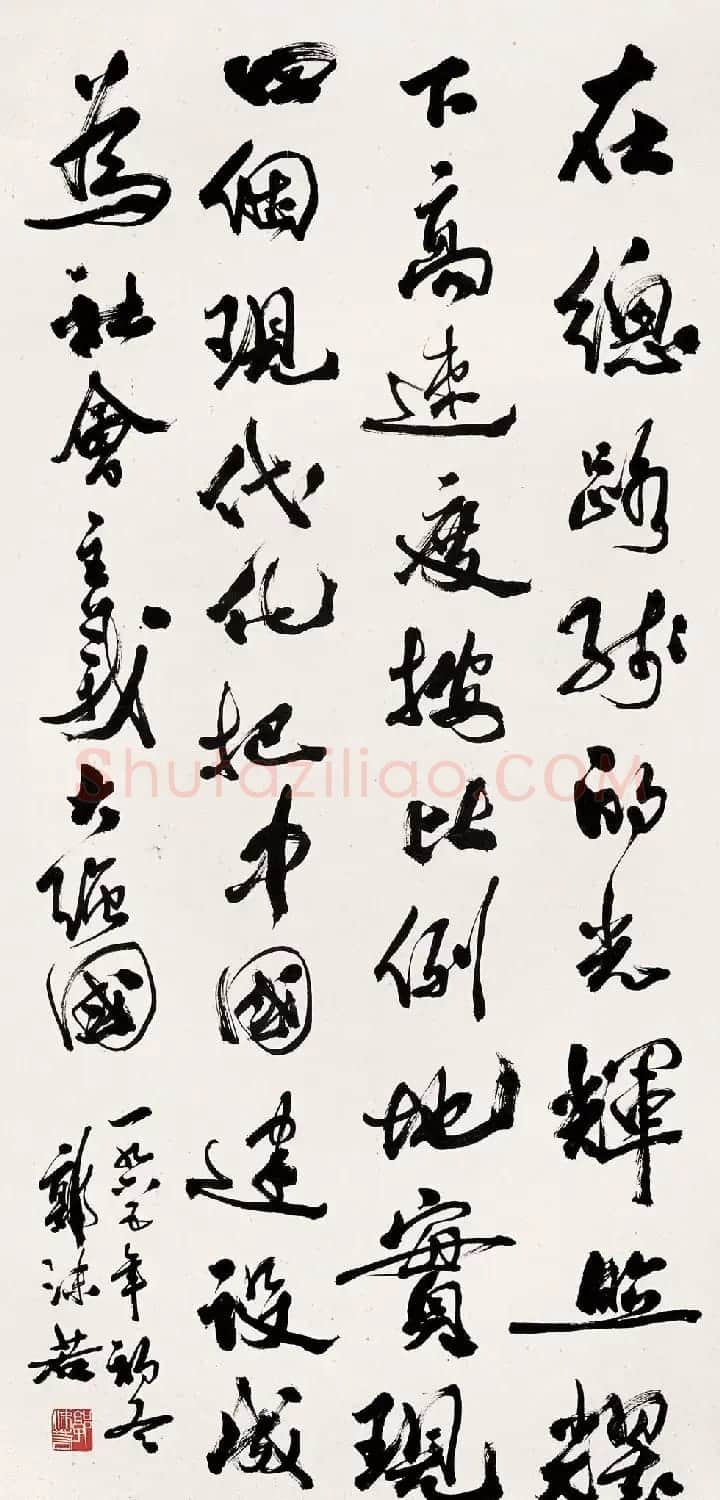 在總路线的光輝照耀
下高速度按比例地實現
四個現代化把中國建設成
為社會主義大强國
一九六五年初冬
郭沫若
郭沫若
Shufaziliao.COM